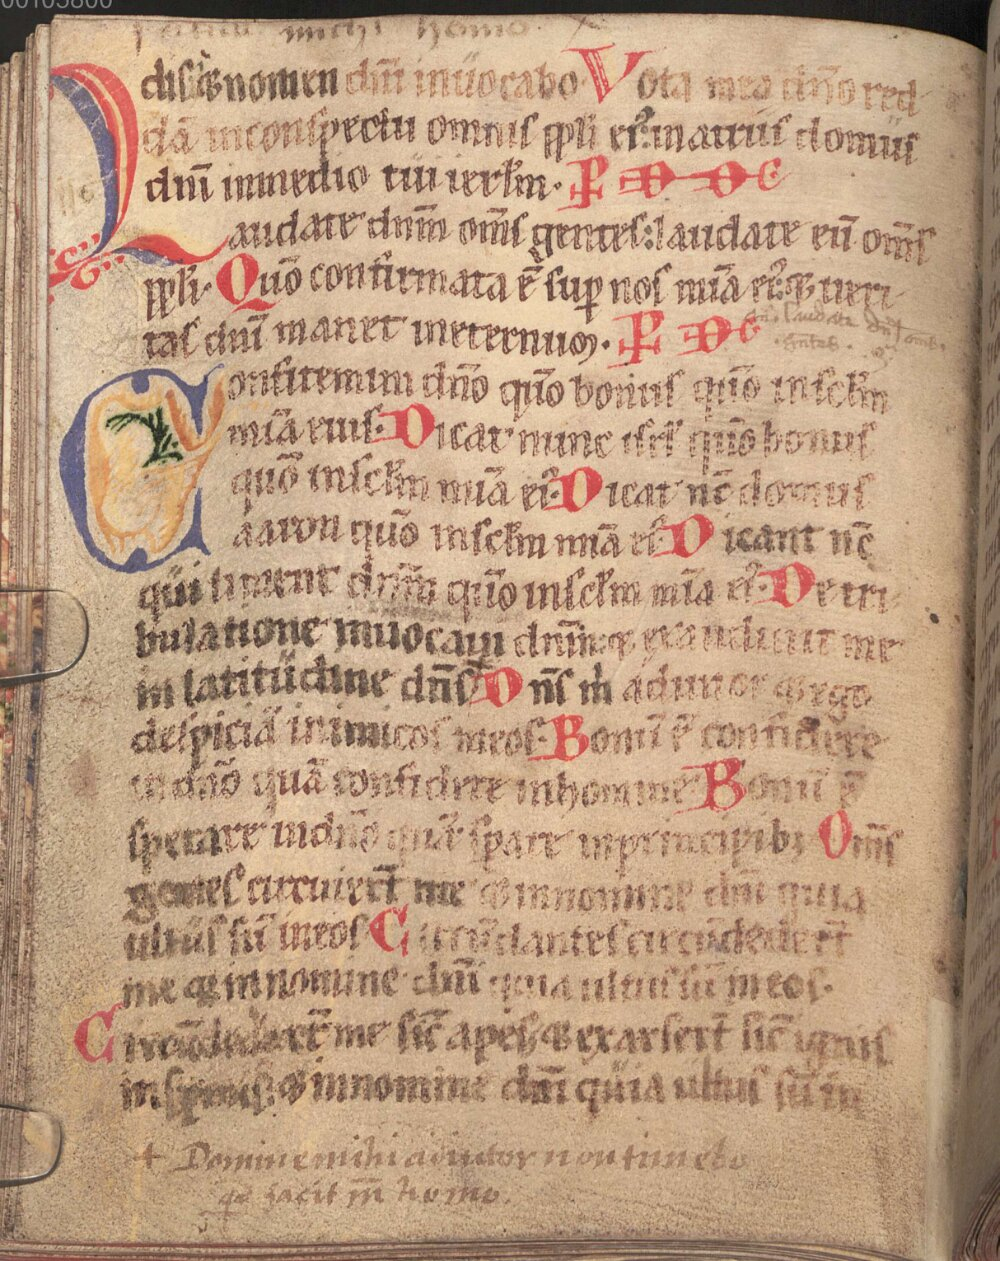 00105800
faciat michi homo.
dis & nomen dn̄i inuocabo. Vota mea dn̄o red
dā inconspectu omnis ppłi ei': inatriis domus
dn̄i inmedio tui ierłm.
Laudate dnm̄ om̄s gentes: laudate eū om̄s
ppłi. Quō confirmata ē sup nos mīa ei': & ueri
tas dn̄i manet ineternum.
laudate dn̄m omēs gentes.
Confitemini dn̄o quō bonus quō insc̄łm
mīa eius. Dicat nunc isrł quō bonus
quō insc̄łm mīa ei'. Dicat nc̄ domus
aaron quō insc̄łm mīa ei'. Dicant nc̄
qui timent dnm̄ quō insc̄łm mīa ei'. De tri
bulatione inuocaui dnm̄: & exaudiuit me
in latitudine dn̄s. Dn̄s m̄ adiutor & ego
despiciā inimicos meos. Bonū ē confidere
in dn̄o quā confidere inhomine. Bonū ē
sperare indn̄o quā spare inprincipib; Om̄s
gentes circuierт̄ me & innomine dn̄i quia
ultus sū ineos. Circūdantes circūdederт̄
me & innomine dn̄i quia ultus sū ineos.
Circūdederт̄ me sic̄ apes & exarserт̄ sic̄ ignis
inspinis: & innomine dn̄i quia ultus sū in
+ Domine mihi adiutor non timebo
q̄ faciat m̄ homo.